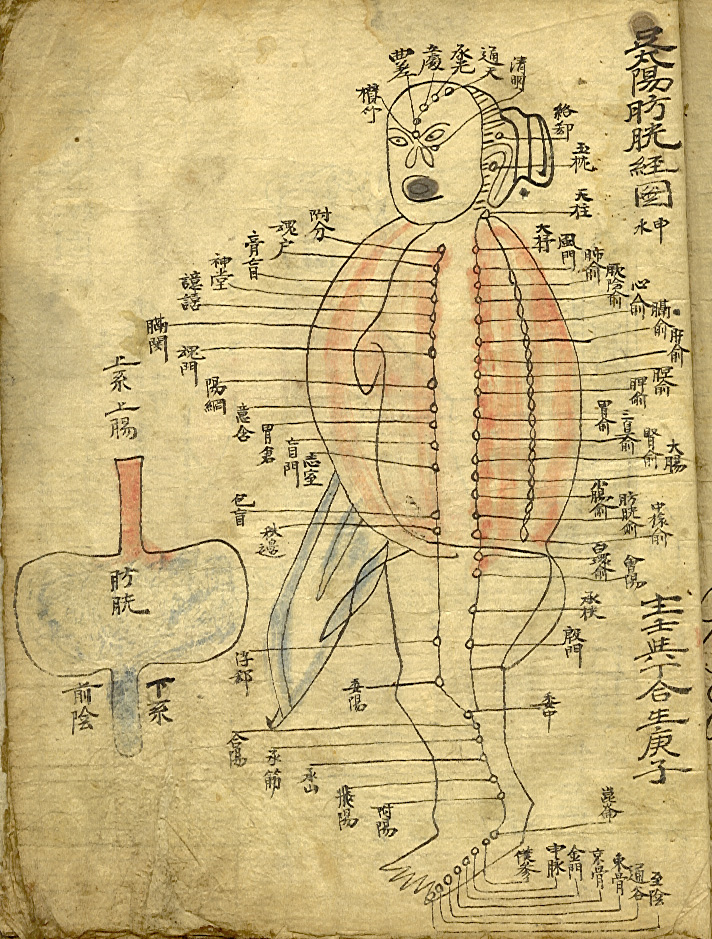 足太陽肪胱經圖
申水
士壬與丁合生庚子
清明
通天
承光
攢竹
絡却
玉枕
天柱
大杼
風門
肺俞
厥陰俞
心俞
膈俞
肝俞
脾俞
胃俞
三焦俞
腎俞
大腸
小腸俞
肪胱俞
中膂俞
白環俞
會陽
承扶
殷門
委中
崑崙
附分
魂户
膏盲
神堂
譩譆
膈関
魂門
陽綱
意舍
胃倉
盲門
志室
包盲
秩邊
浮郄
委陽
合陽
承筋
承山
飛陽
附陽
僕參
申脉
金門
京骨
束骨
通谷
至陰
上系上腸
肪胱
下系
前陰